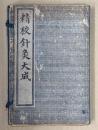 精校針灸大成